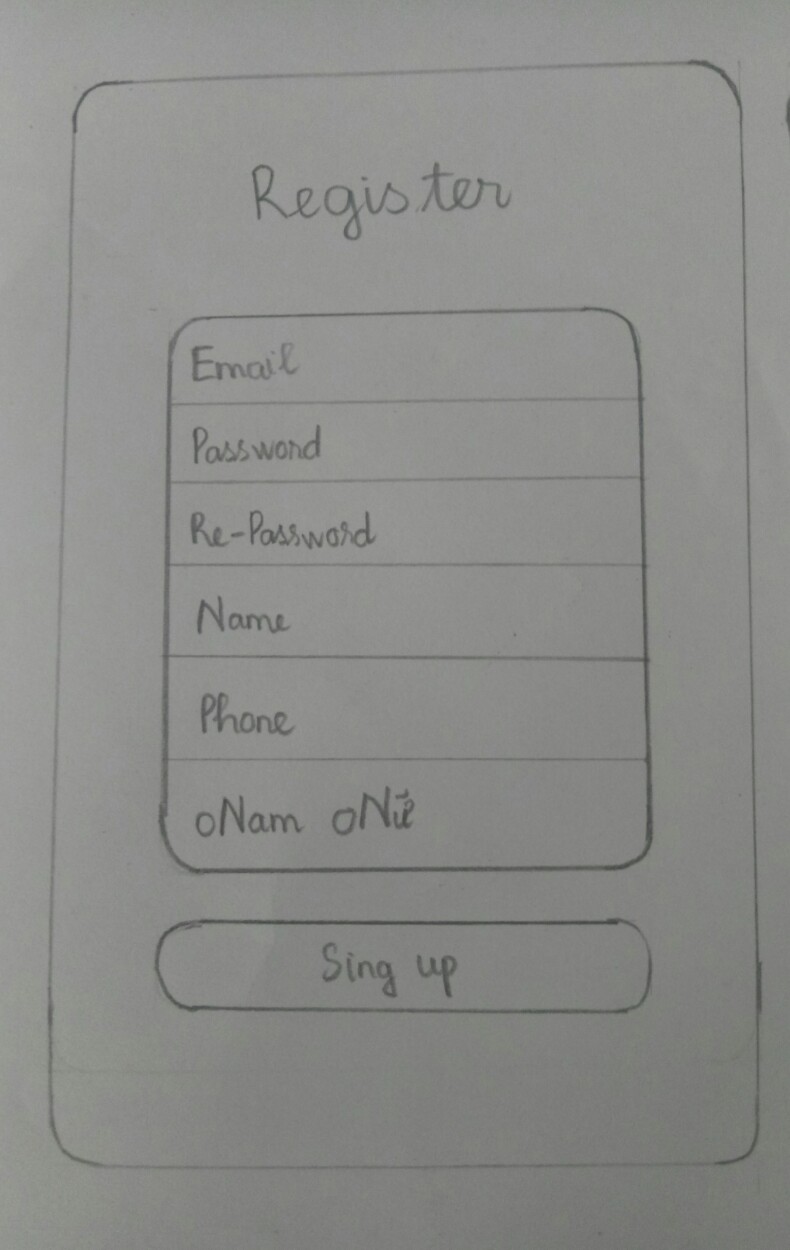 Register
Email
Password
Re-Password
Name
Phone
oNam oNữ
Sing up